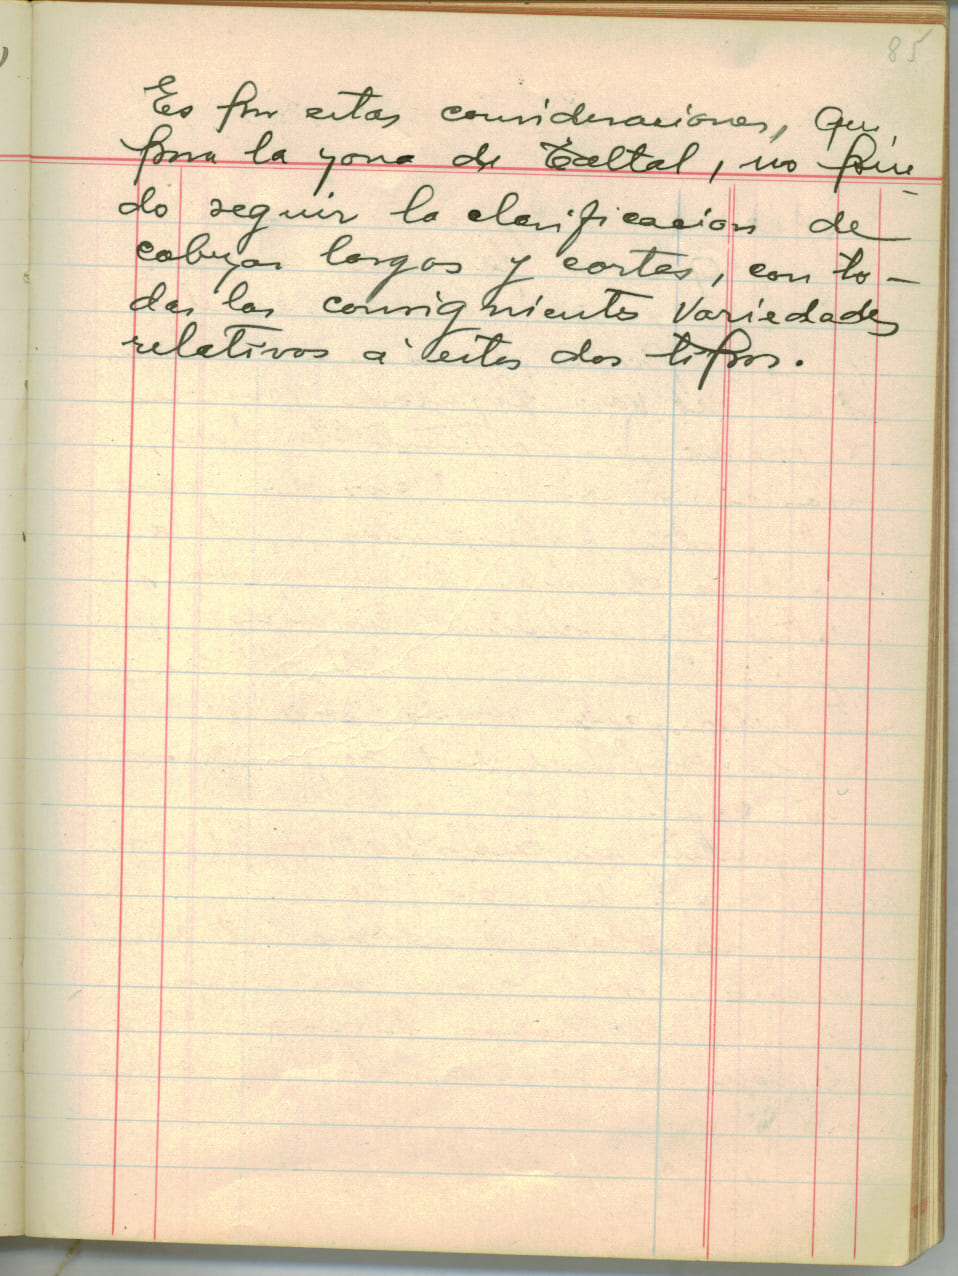 85
Es por estas consideraciones, que,
para la zona de Taltal, no pue-
do seguir la clasificacion de
cabezas largas y cortas, con to-
das las consiguientes variedades
relativos a estos dos tipos.